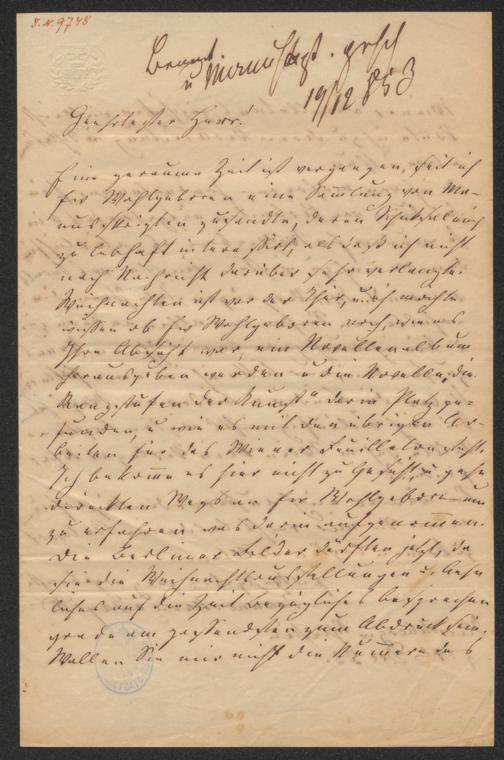 J.N. 9748
Beantw.
u Manuskript. gesch
19/12 853
Geehrtester Herr!
Eine geraume Zeit ist vergangen, seit ich
Ew Wohlgeboren eine Sammlung von Ma-
nuskripten zusandte, deren Schicksal mich
zu lebhaft interessirt, als daß ich nicht
nach Nachricht darüber sehr verlangte.
Weihnachten ist vor der Thür, u ich möchte
wissen ob Ew Wohlgeboren noch, wie es
Ihre Absicht war, ein Novellenalbum
herausgeben werden u die Novelle „die
Rangstufen der Kunst“ darin Platz ge-
funden, u wie es mit den übrigen Ar-
beiten für das Wiener Feuilleton steht.
Ich bekomme es hier nicht zu Gesicht, u gehe
direkten Wegs an Ew Wohlgeboren um
zu erfahren was darin aufgenommen.
Die Berliner Bilder dürften jetzt, da
sie die Weihnachtsausstellungen u. Aehn
liches auf die Zeit bezügliches besprechen
grade am passendsten zum Abdruck sein.
Wollen Sie mir nicht die Nummern des